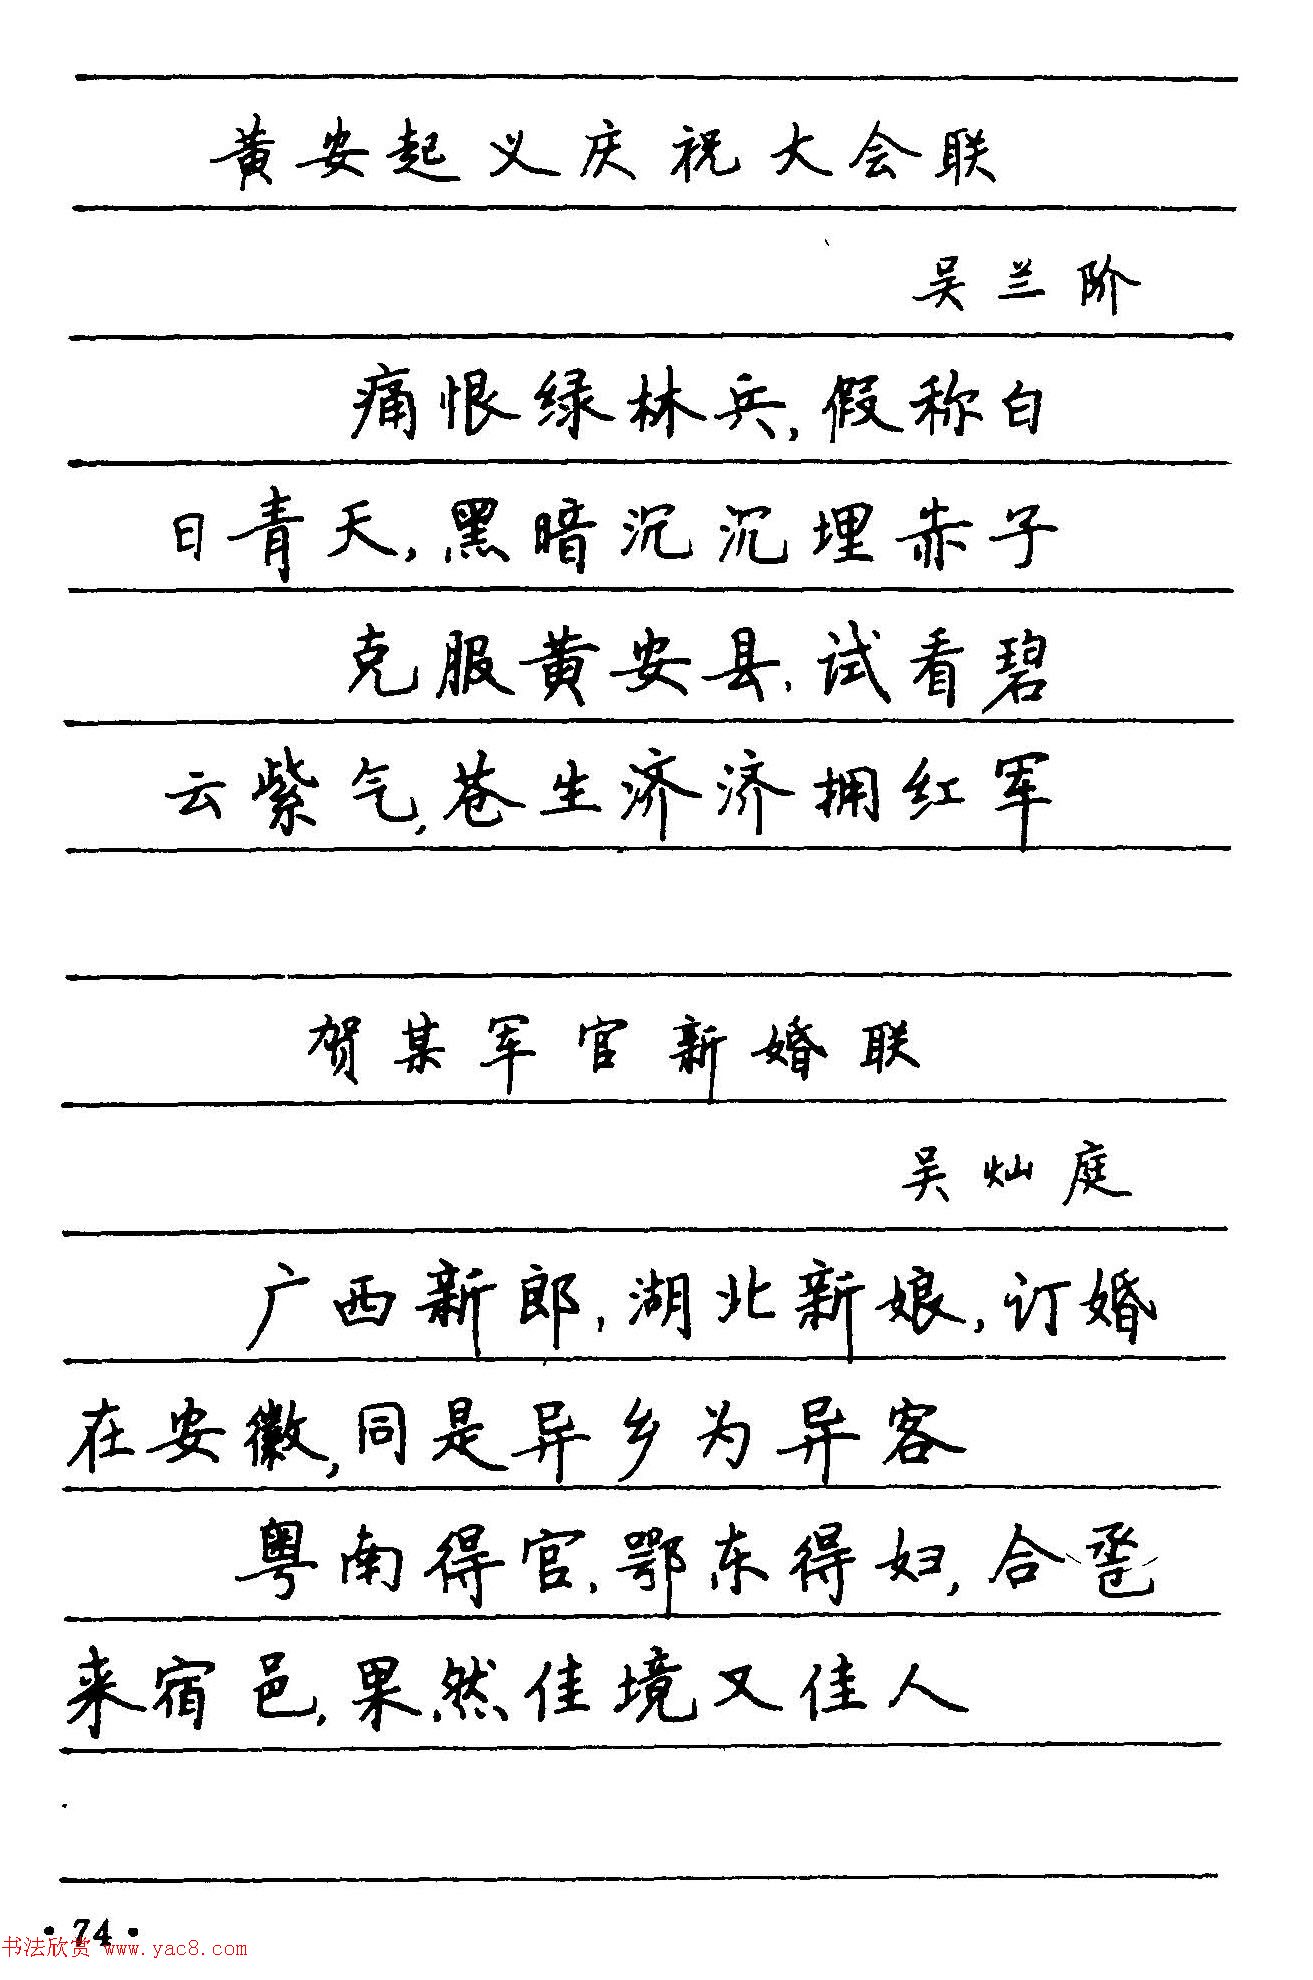 黄安起义庆祝大会联
吴兰阶
痛恨绿林兵,假称白
日青天,黑暗沉沉埋赤子
克服黄安县,试看碧
云紫气,苍生济济拥红军
贺某军官新婚联
吴灿庭
广西新郎,湖北新娘,订婚
在安徽,同是异乡为异客
粤南得官,鄂东得妇,合卺
来宿邑,果然佳境又佳人
·74·
书法欣赏 www.yac8.com